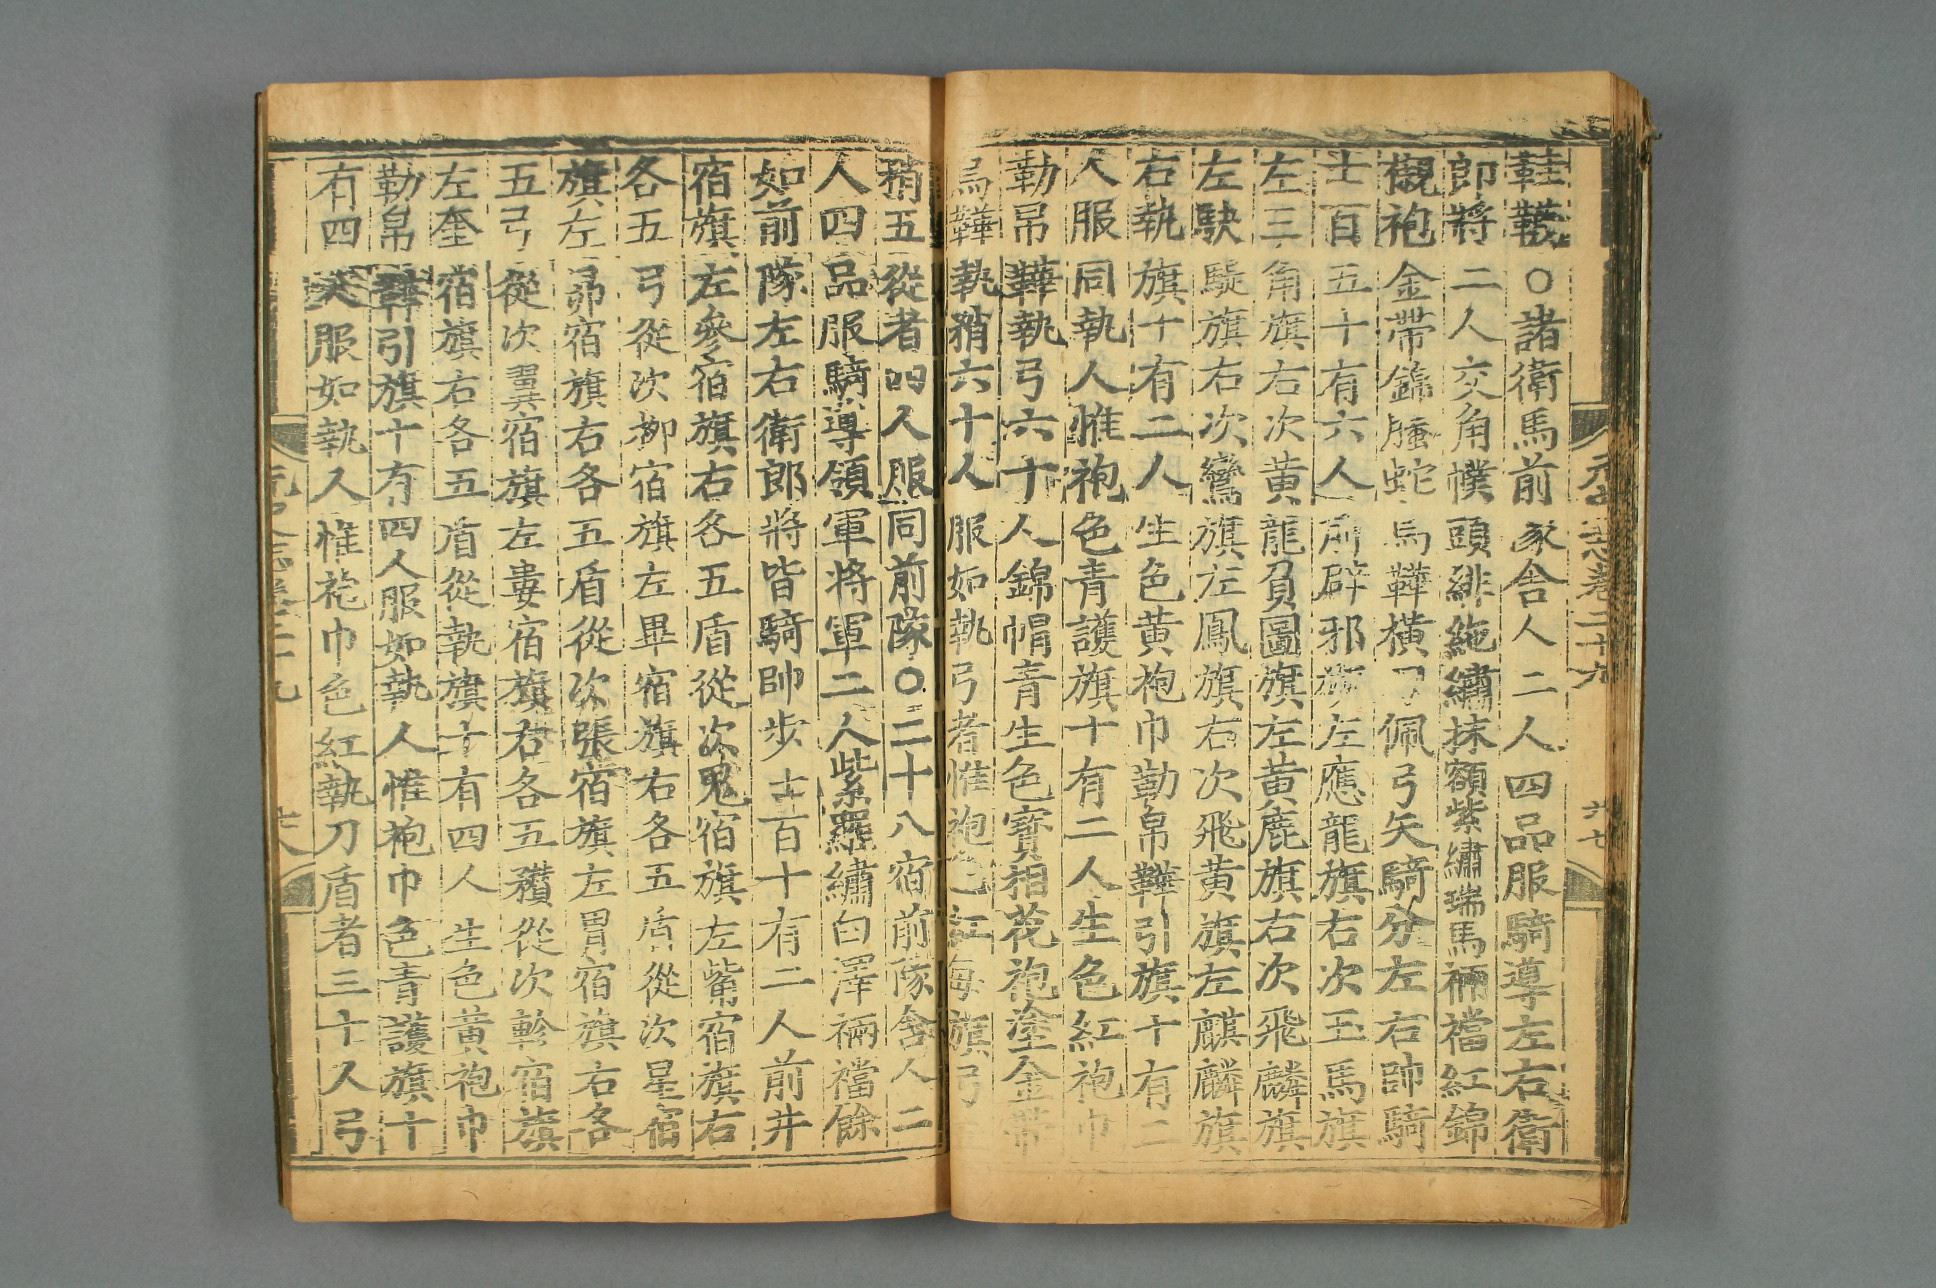 鞋韈○諸衛馬前隊舍人二人四品服騎導左右衛
郎將二人交角幞頭緋絁繡抹額紫繡瑞馬裲襠紅錦
襯袍金帶錦螣蛇烏鞾橫刀佩弓矢騎分左右帥騎
士百五十有六人前辟邪旗左應龍旗右次玉馬旗
左三角旗右次黃龍負圖旗左黃鹿旗右次飛麟旗
左駃騠旗右次鸞旗左鳳旗右次飛黃旗左麒麟旗
右執旗十有二人生色黃袍巾勒帛鞾引旗十有二
人服同執人惟袍色青護旗十有二人生色紅袍巾
勒帛鞾執弓六十人錦帽青生色寶相花袍塗金帶
烏鞾執矟六十人服如執弓者惟袍色紅每旗弓
矟五從者四人服同前隊○二十八宿前隊舍人二
人四品服騎導領軍將軍二人紫羅繡白澤裲襠餘
如前隊左右衛郎將皆騎帥步士百十有二人前井
宿旗左參宿旗右各五盾從次鬼宿旗左觜宿旗右
各五弓從次柳宿旗左畢宿旗右各五盾從次星宿
旗左昴宿旗右各五盾從次張宿旗左胃宿旗右各
五弓從次翼宿旗左婁宿旗右各五穳從次軫宿旗
左奎宿旗右各五盾從執旗十有四人生色黃袍巾
勒帛鞾引旗十有四人服如執人惟袍巾色青護旗十
有四人服如執人惟袍巾色紅執刀盾者三十人弓
元史志卷二十九
六七
元史志卷二十九